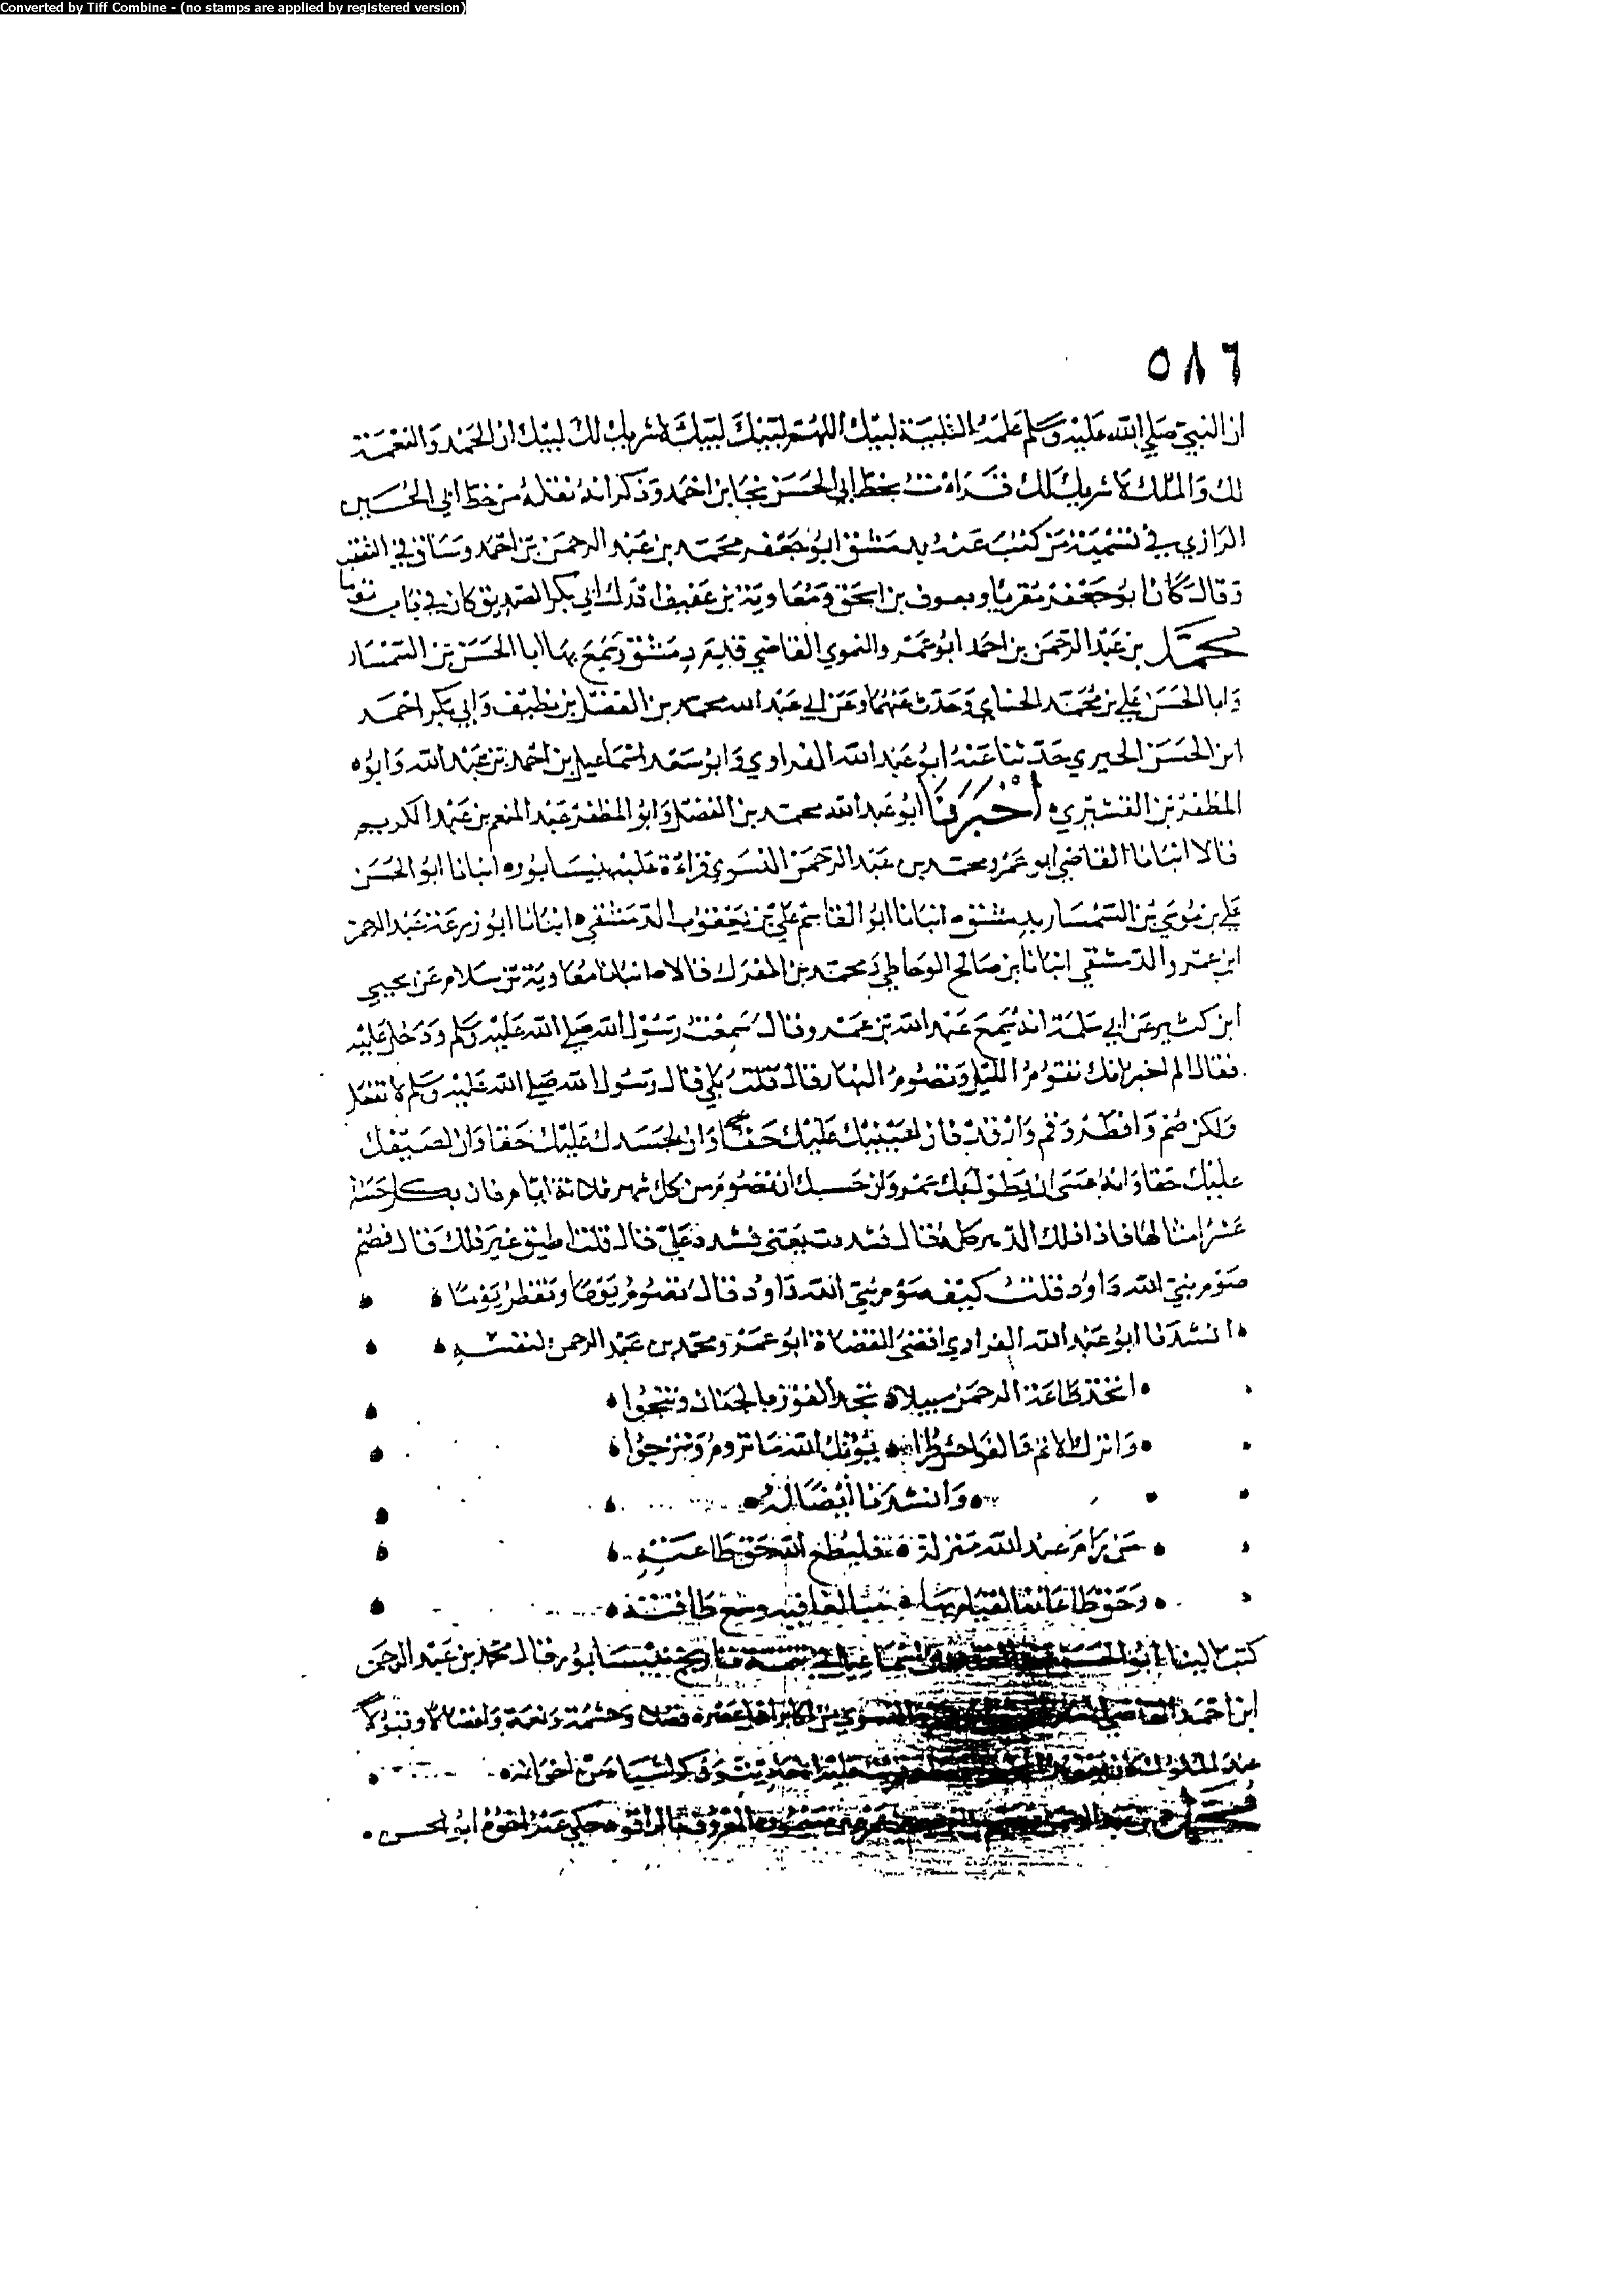 Converted by Tiff Combine - (no stamps are applied by registered version)
٥٨٦
ان النبي صلى الله عليه وسلم علمه التلبية لبيك اللهم لبيك لبيك لا شريك لك لبيك ان الحمد والنعمة
لك والملك لا شريك لك قرات بخط ابي الحسن نجا بن احمد وذكر انه نقله من خط ابي الحسين
الرازي في تسمية من كتب عنه بدمشق ابو جعفر محمد بن عبد الرحمن بن احمد
وقال كان ابو جعفر مقريا ومعاوية بن عفيف ابي بكر الصديق كان في باب توما
محمد بن عبد الرحمن بن احمد ابو عمرو النسوي القاضي قدم دمشق وسمع بها ابا الحسن بن السمسار
وابا الحسن علي بن محمد الحناي وحدث عنهما وعن ابي عبد الله محمد بن الفضل بن نظيف وابي بكر احمد
ابن الحسن الحيري حدثنا عنه ابو عبد الله الفراوي وابو سعد اسماعيل بن احمد بن عبد الله وابو
المظفر بن القشيري اخبرنا ابو عبد الله محمد بن الفضل وابو المظفر عبد المنعم بن عبد الكريم
قالا انبانا القاضي ابو عمرو محمد بن عبد الرحمن النسوي قراءة عليه بنيسابور انبانا ابو الحسن
علي بن موسى بن السمسار بدمشق انبانا ابو القاسم علي بن يعقوب الدمشقي انبانا ابو زرعة عبد الرحمن
ابن عمرو الدمشقي انبانا بن صالح الوحاظي ومحمد بن المبرك قالا انبانا معاوية بن سلام عن يحيى
ابن كثير عن ابي سلمة انه سمع عبد الله بن عمرو قال سمعت رسول الله صلى الله عليه وسلم ودخل عليه
فقال الم اخبر انك تقوم الليل وتصوم النهار قال قلت بلى قال رسول الله صلى الله عليه وسلم لا تفعل
ولكن صم وافطر وقم وارقد فان لعينيك عليك حقا وان لجسدك عليك حقا وان لضيفك
عليك حقا وانه عسى ان يطول بك عمر وان حسبك ان تصوم من كل شهر ثلاثة ايام فان بكل حسنة
عشر امثالها فاذا ذلك الدهر كله قال فشددت يعني فشدد علي قال قلت اطيق غير ذلك قال فصم
صوم نبي الله داود قلت كيف صوم نبي الله داود قال تصوم يوما وتفطر يوما
انشدنا ابو عبد الله الفراوي اقضى القضاة ابو عمرو محمد بن عبد الرحمن لنفسه
اتخذ طاعة الرحمن سبيلا تجد الفوز بالجنان وتنجوا
واترك الاثم والفواحش طرا يؤتك الله ما تروم وترجوا
وانشدنا ايضا له
من رام عند الله منزلة فليطع الله حق طاعته
وحق طاعاته القيام بها وسع طاقته
كتب الينا ابو الحسن اسماعيل في تتمة تاريخ نيسابور قال محمد بن عبد الرحمن
ابن احمد القاضي النسوي من اكابر اهل عصره فضلا وحشمة ونعمة وافضالا وقبولا
عند الملوك
محمد بن عبد الرحمن المعروف حكى عنه ابو الحسن